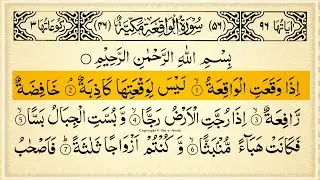 اٰیَاتُهَا ٩٦ (٥٦) سُوْرَةُ الْوَاقِعَةِ مَكِّیَّةٌ (٤٦) رُكُوْعَاتُهَا ٣
بِسْمِ اللّٰهِ الرَّحْمٰنِ الرَّحِیْمِ
اِذَا وَقَعَتِ الْوَاقِعَةُ ① لَیْسَ لِوَقْعَتِهَا كَاذِبَةٌ ② خَافِضَةٌ
رَّافِعَةٌ ③ اِذَا رُجَّتِ الْاَرْضُ رَجًّا ④ وَّ بُسَّتِ الْجِبَالُ بَسًّا ⑤
فَكَانَتْ هَبَآءً مُّنْۢبَثًّا ⑥ وَّ كُنْتُمْ اَزْوَاجًا ثَلٰثَةً ⑦ فَاَصْحٰبُ